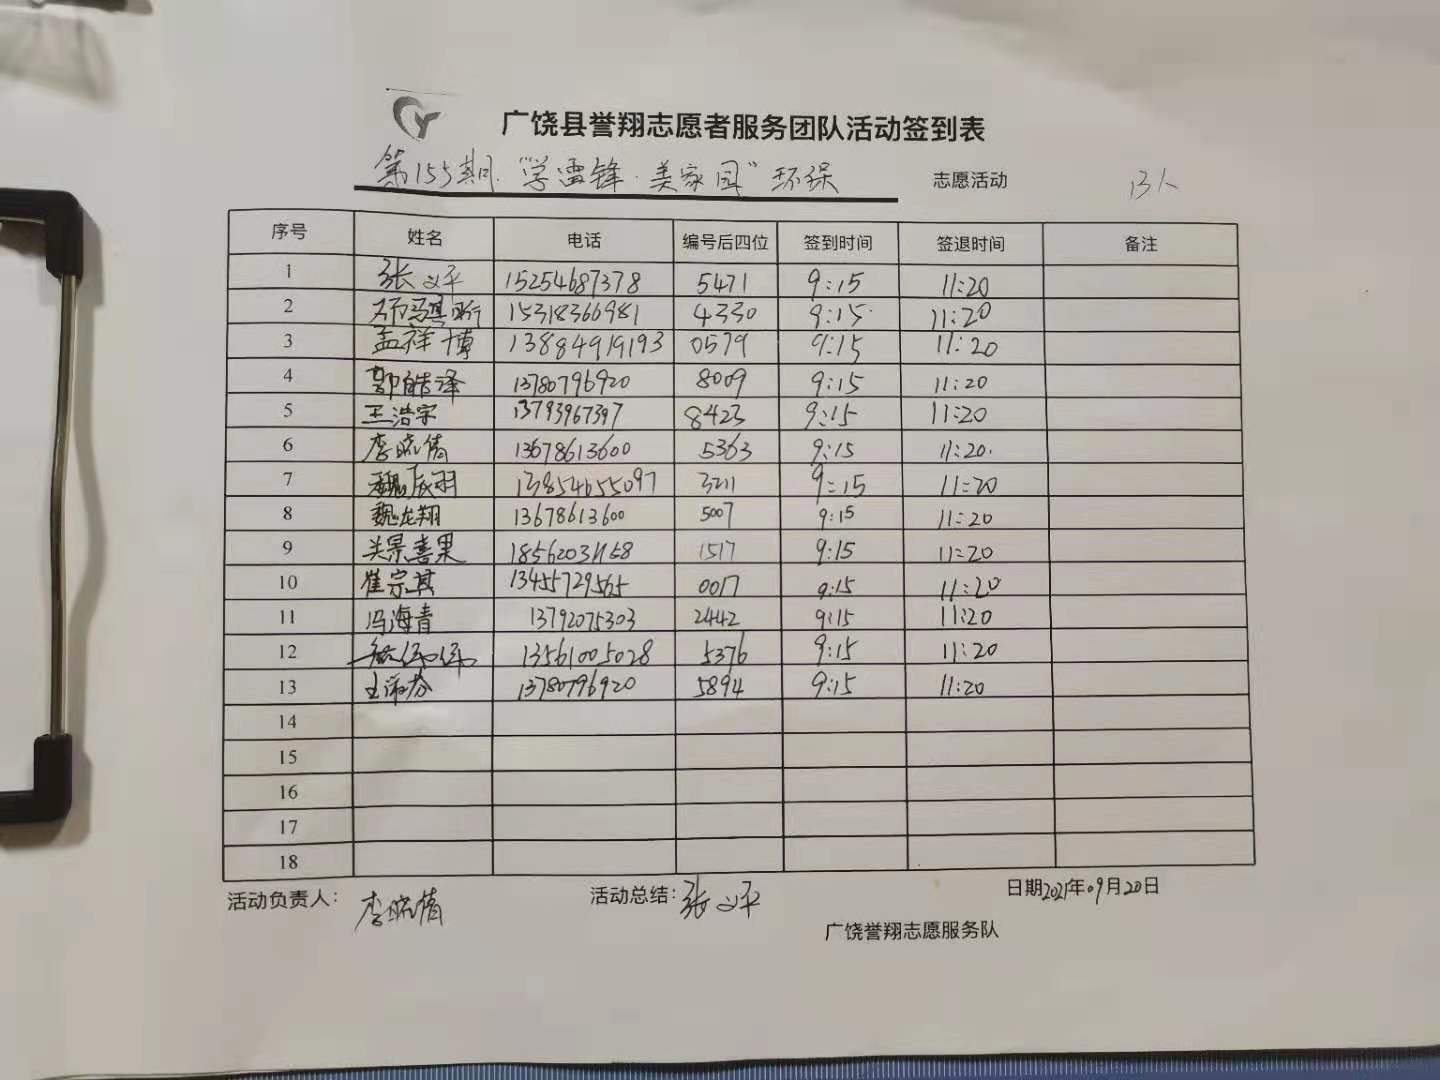 广饶县誉翔志愿者服务团队活动签到表
第155期.“学雷锋·美家园”环保 志愿活动 13人
序号 姓名 电话 编号后四位 签到时间 签退时间 备注
1 张义平 15254687378 5471 9:15 11:20
2 15318366981 4330 9:15 11:20
3 孟祥博 13884919193 0579 9:15 11:20
4 郭皓泽 13780796920 8009 9:15 11:20
5 王浩宇 13793967397 8423 9:15 11:20
6 李晓倩 13678613600 5363 9:15 11:20
7 魏辰羽 13854655097 3211 9:15 11:20
8 魏龙翔 13678613600 5007 9:15 11:20
9 1517 9:15 11:20
10 崔宗其 13455729565 0017 9:15 11:20
11 冯海青 13792075303 2442 9:15 11:20
12 13561005028 5376 9:15 11:20
13 13780796920 5894 9:15 11:20
14
15
16
17
18
活动负责人: 李晓倩 活动总结: 张义平 日期2021年09月20日
广饶誉翔志愿服务队